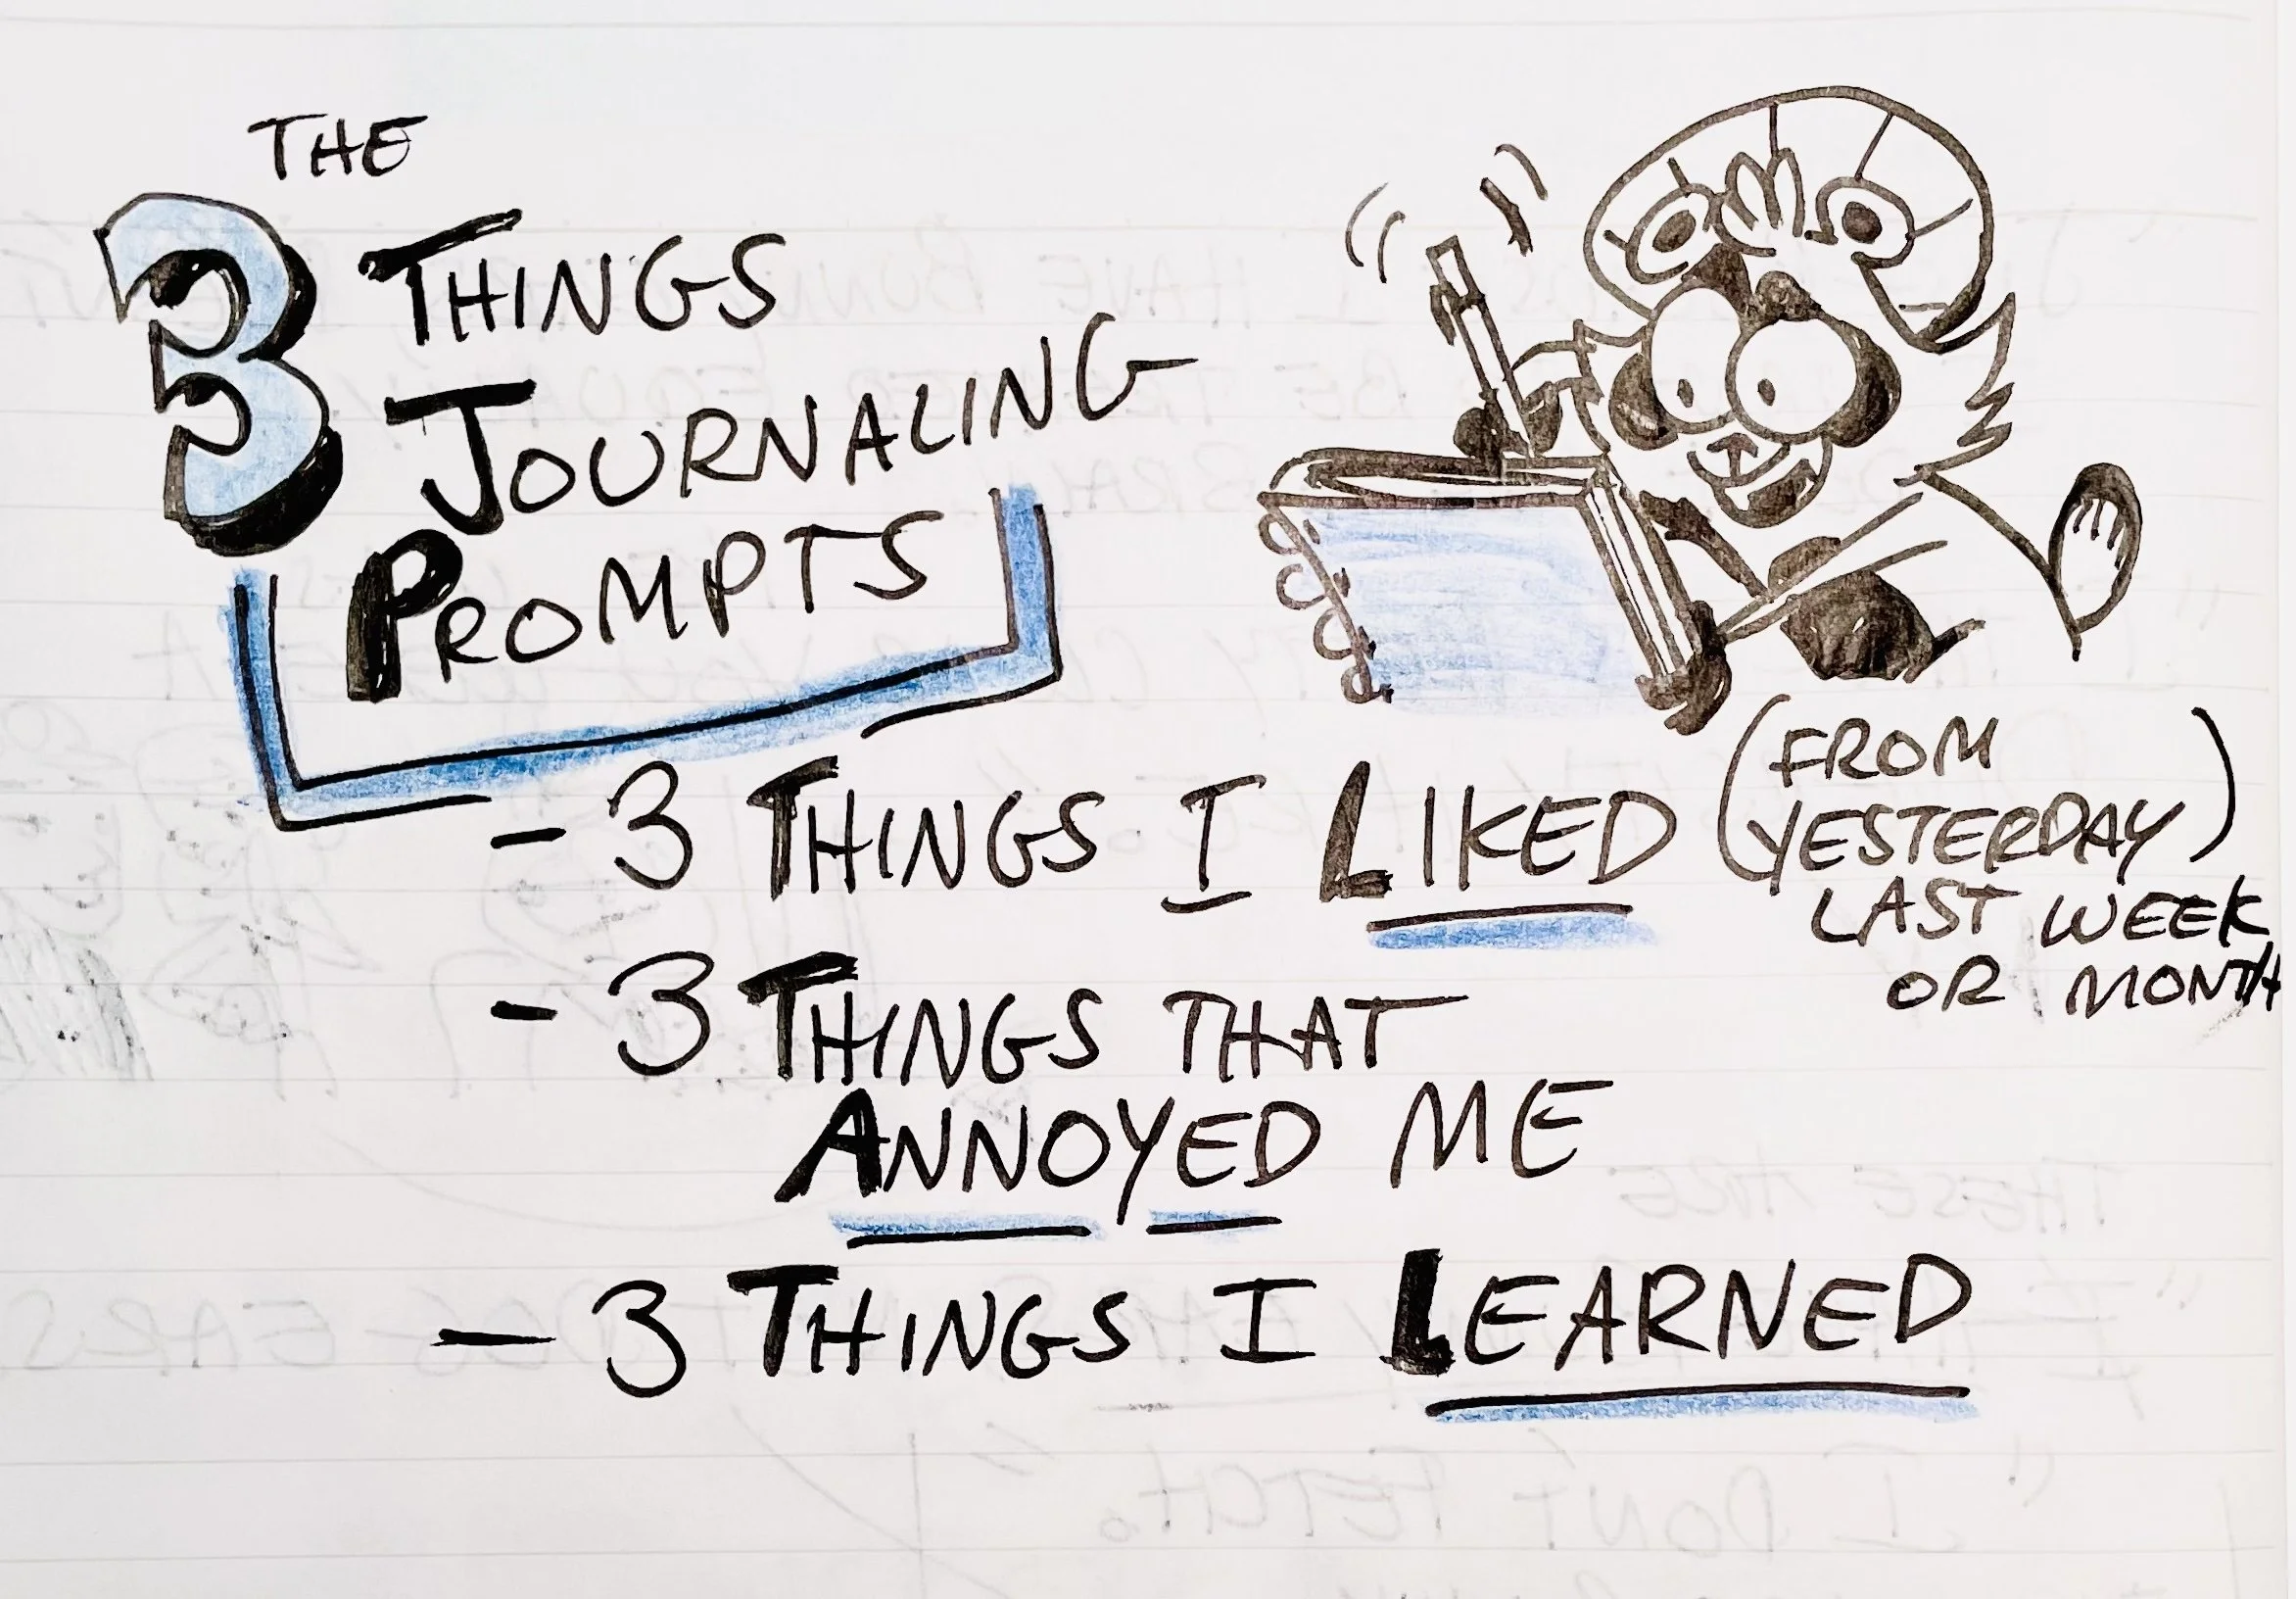 THE
3 THINGS
JOURNALING
PROMPTS
- 3 THINGS I LIKED
(FROM
YESTERDAY)
LAST WEEK
OR MONTH
- 3 THINGS THAT
ANNOYED ME
- 3 THINGS I LEARNED